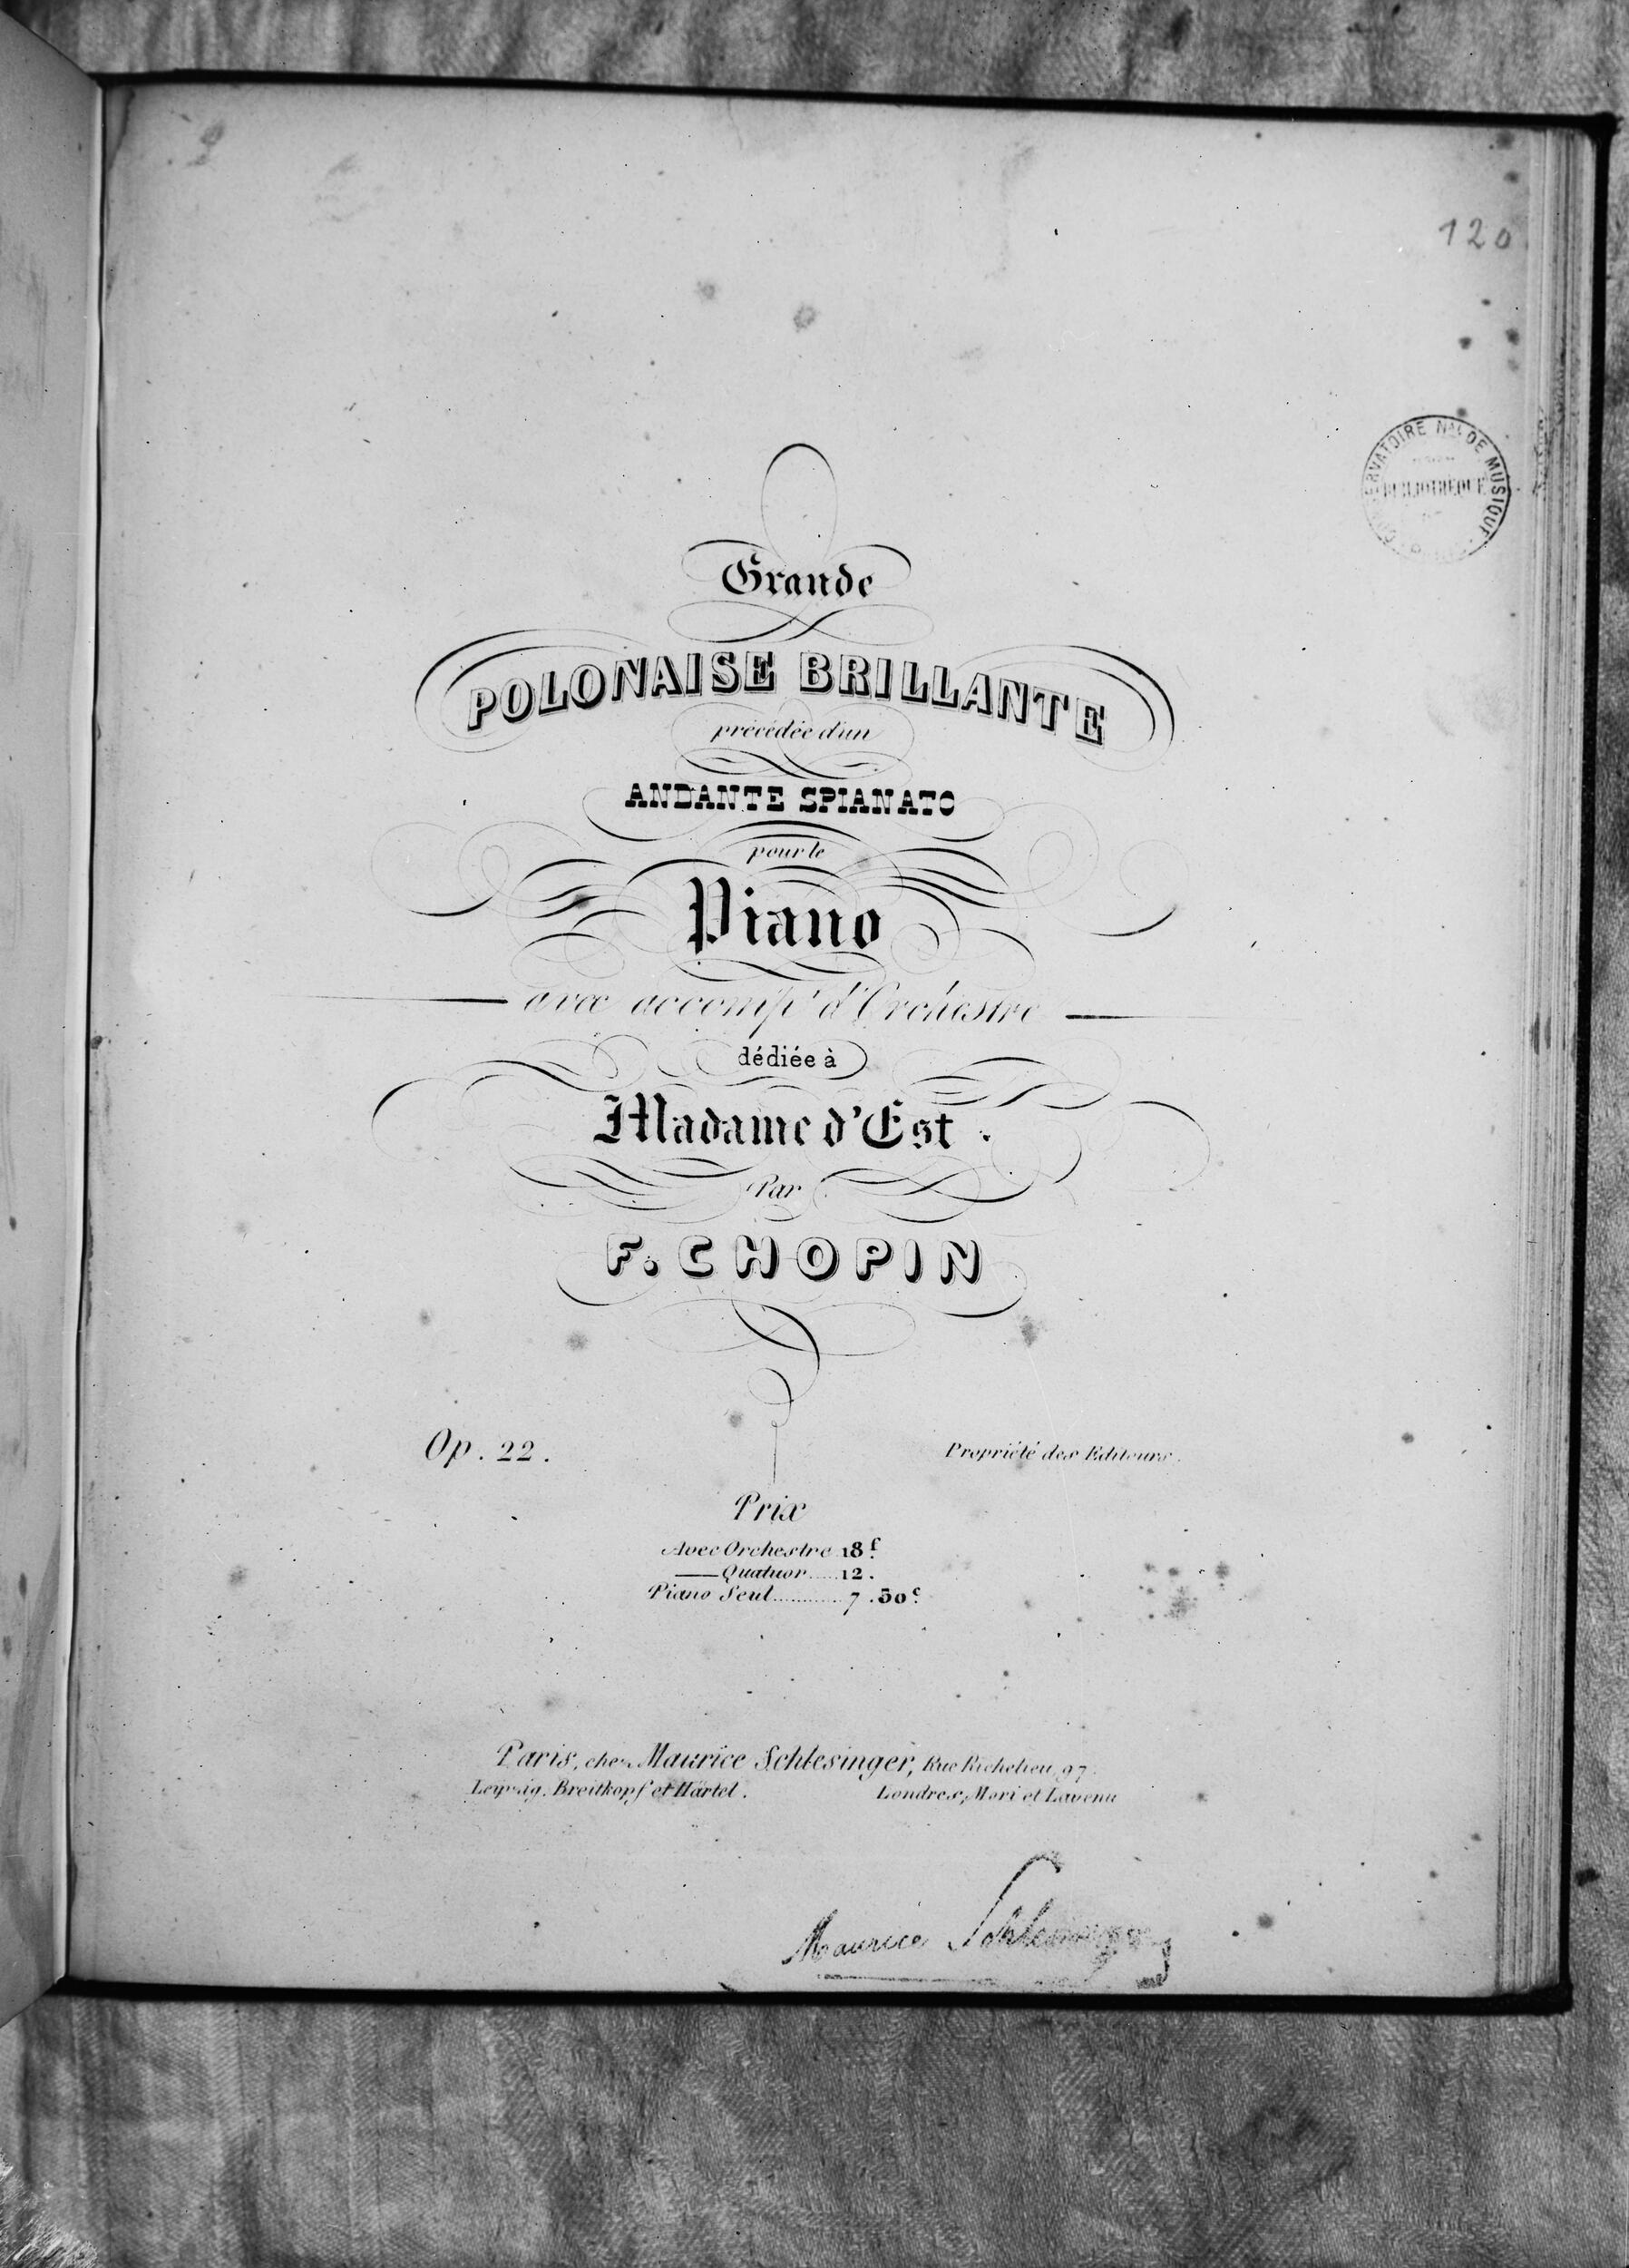 120
CONSERVATOIRE Nal DE MUSIQUE
BIBLIOTHÈQUE
Grande
POLONAISE BRILLANTE
précédée d'un
ANDANTE SPIANATO
pour le
Piano
avec accompt d'Orchestre
dédiée à
Madame d'Est.
Par
F. CHOPIN
Op. 22. Propriété des Editeurs.
Prix
Avec Orchestre 18f.
— Quatuor.....12.
Piano Seul............7.50c.
Paris, chez Maurice Schlesinger, Rue Richelieu, 97.
Leipzig. Breitkopf et Härtel. Londres, Mori et Lavenu
Maurice Schlesinger